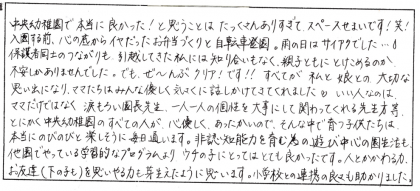 中央幼稚園で本当に良かった！と思うことはたくさんありすぎて、スペースせまいです！笑！
入園する前、心の底からイヤだったお弁当づくりと自転車登園。雨の日はサイアクでした…
保護者同士のつながりも、引越してきた私には知り合いもなく、親子ともにとけこめるのか、
不安しかありませんでした。でも、ぜ〜んぶクリア！です！！すべてが私と娘との大切な
思い出になり、ママたちはみんな優しく気さくに話しかけてきてくれました いい人なのは、
ママだけではなく 涙もろい園長先生、一人一人の個性を大事にして関わってくれる先生方等、
とにかく中央幼稚園のすべての人が、心優しく、あったかいので、そんな中で育つ子供たちは、
本当にのびのびと楽しそうに毎日通います。非認知能力を育む為の遊び中心の園生活も
他園でやっている学習的なプログラムより ウチの子にとってはとても良かったです。人とかかわる力、
お友達（下の子も）を思いやる力も芽生えたように思います。小学校との連携の良さも助かりました。